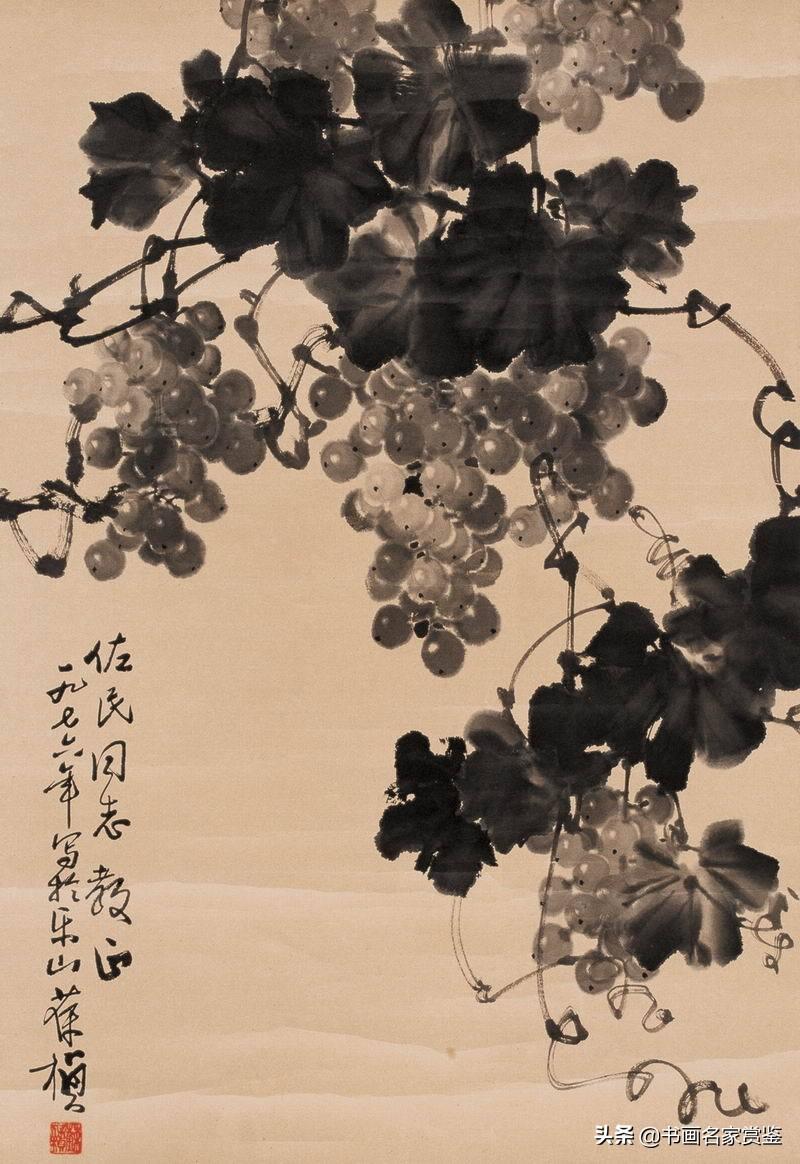 佐民同志教正
一九七六年写於乐山葆楨
头条 @书画名家赏鉴